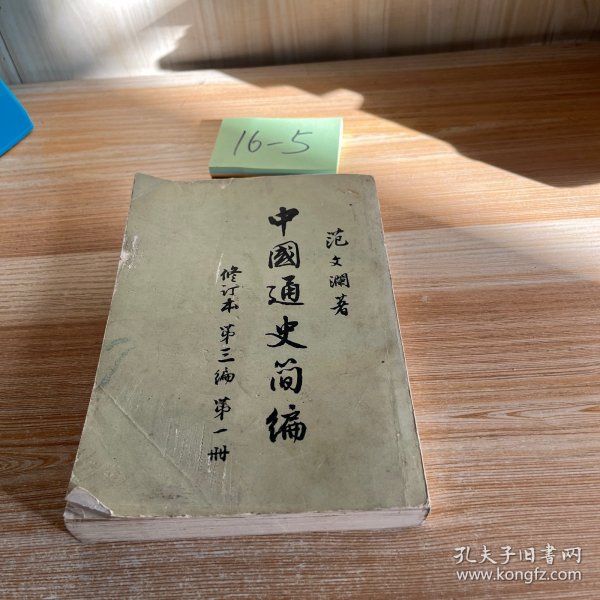 16-5
范文瀾著
中國通史简编
修订本 第三编 第一册
孔夫子旧书网
www.kongfz.com